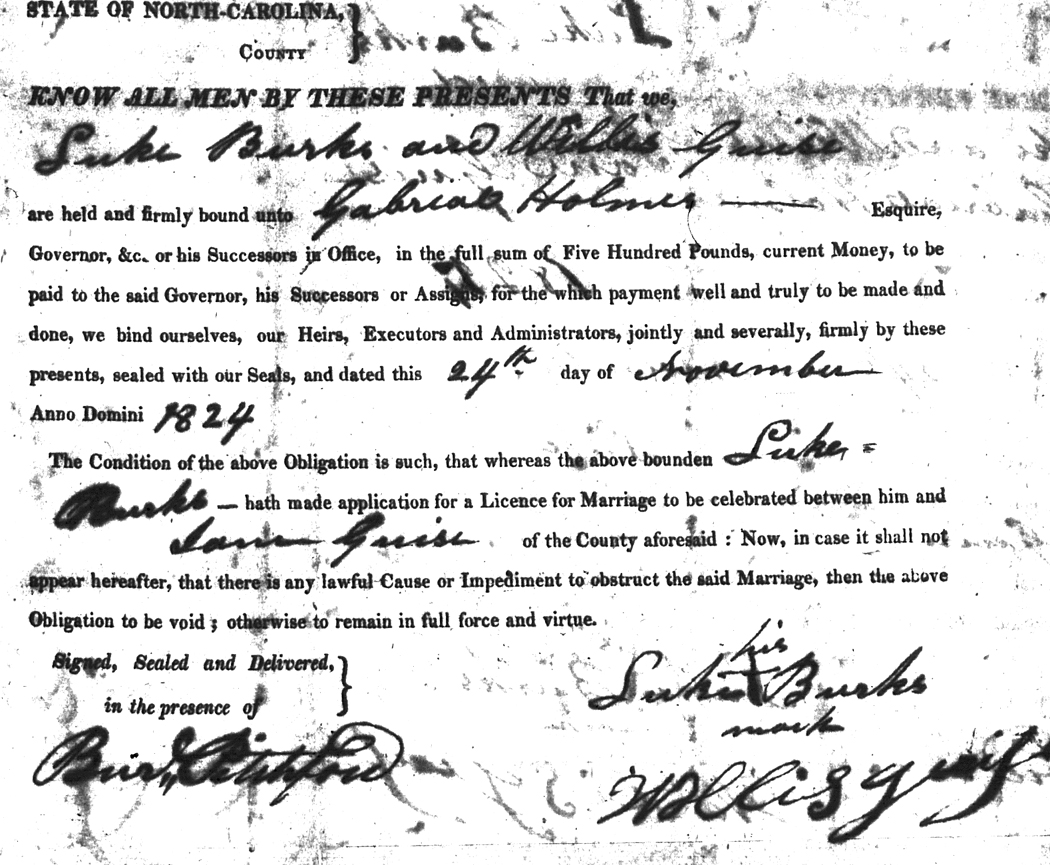 STATE OF NORTH-CAROLINA,
COUNTY
KNOW ALL MEN BY THESE PRESENTS That we,
Luke Burks and Willis Guise
are held and firmly bound unto Gabriel Holmes — Esquire,
Governor, &c. or his Successors in Office, in the full sum of Five Hundred Pounds, current Money, to be
paid to the said Governor, his Successors or Assigns, for the which payment well and truly to be made and
done, we bind ourselves, our Heirs, Executors and Administrators, jointly and severally, firmly by these
presents, sealed with our Seals, and dated this 24th day of November
Anno Domini 1824
The Condition of the above Obligation is such, that whereas the above bounden Luke =
Burks — hath made application for a Licence for Marriage to be celebrated between him and
Jane Guise of the County aforesaid : Now, in case it shall not
appear hereafter, that there is any lawful Cause or Impediment to obstruct the said Marriage, then the above
Obligation to be void ; otherwise to remain in full force and virtue.
Signed, Sealed and Delivered,
in the presence of
his
Luke Burks
mark
Burd Pitchford
Willis Guise